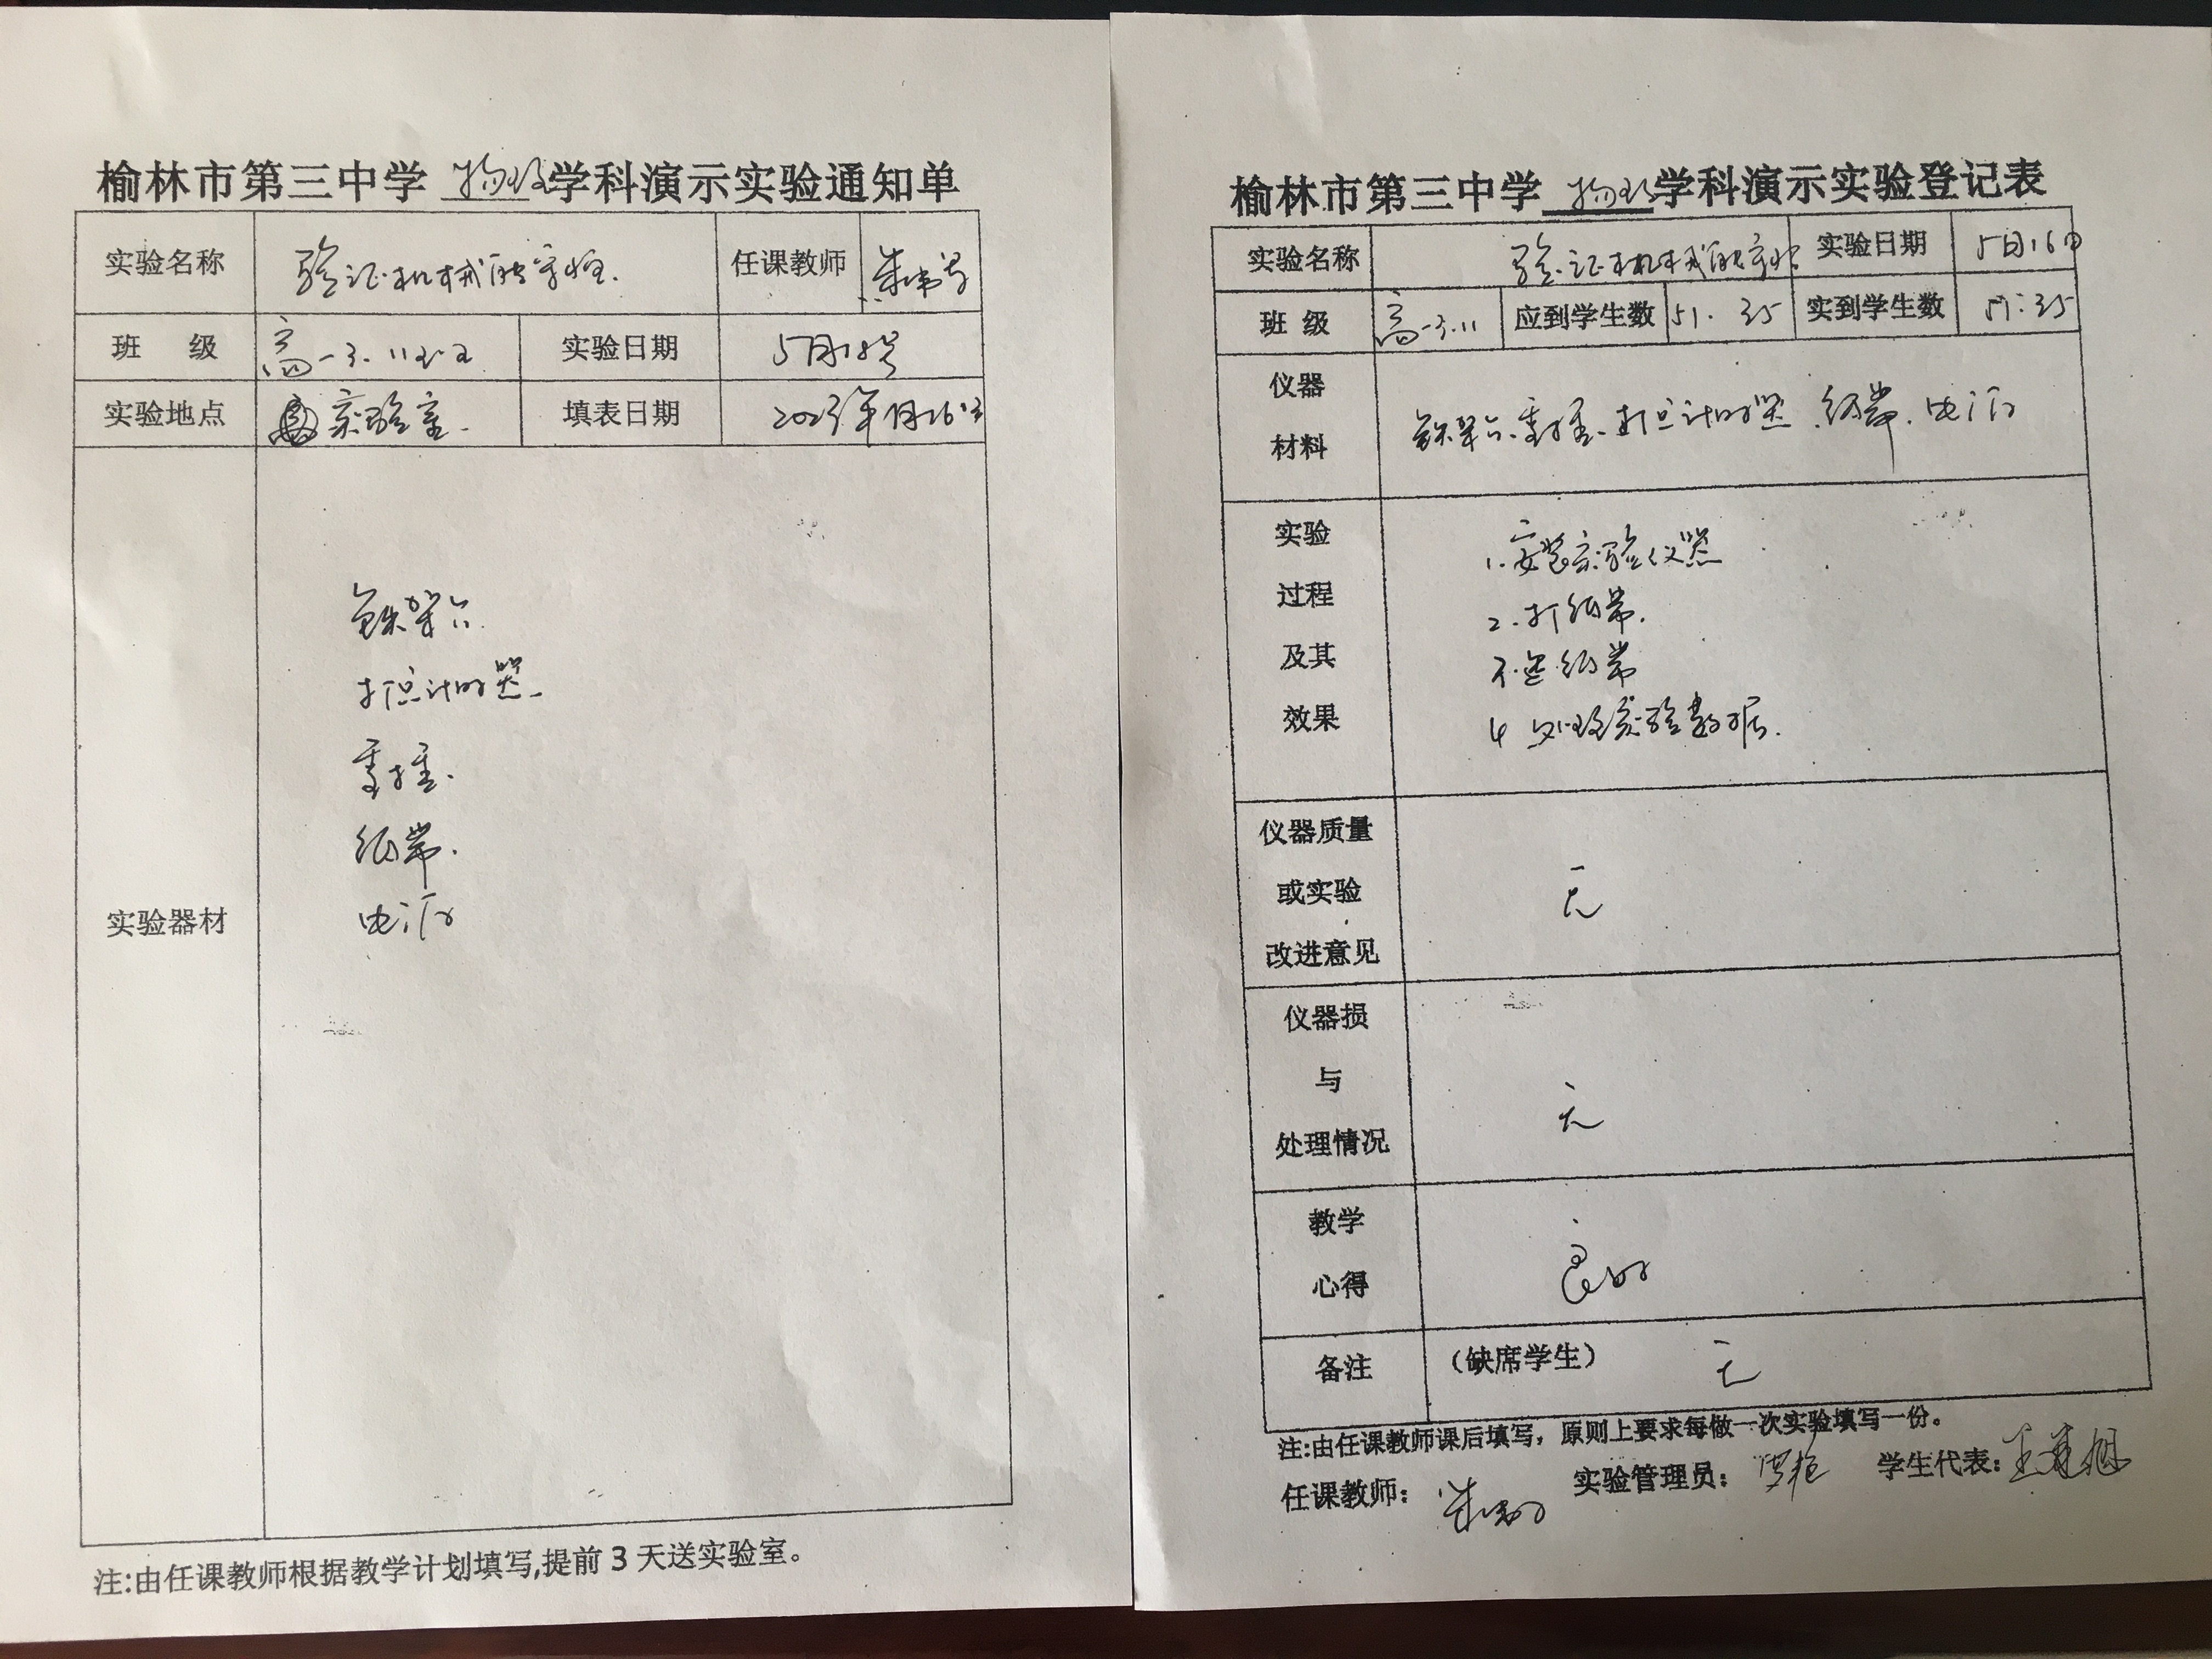 榆林市第三中学 物理 学科演示实验通知单
实验名称 验证机械能守恒. 任课教师
班 级 高一3.11班 实验日期 5月18号
实验地点 实验室. 填表日期
实验器材
铁架台
打点计时器
重锤.
纸带.
电源
注:由任课教师根据教学计划填写,提前3天送实验室。
榆林市第三中学 物理 学科演示实验登记表
实验名称 验证机械能守恒 实验日期 5月16日
班 级 高一3.11 应到学生数 51. 35 实到学生数 51. 35
仪器
材料
铁架台.重锤.打点计时器.纸带.电源
实验
过程
及其
效果
1.安装实验仪器
2.打纸带.
纸带
4 处理实验数据.
仪器质量
或实验
改进意见
无
仪器损
与
处理情况
无
教学
心得
良好
备注 （缺席学生） 无
注:由任课教师课后填写，原则上要求每做一次实验填写一份。
任课教师: 实验管理员: 学生代表: